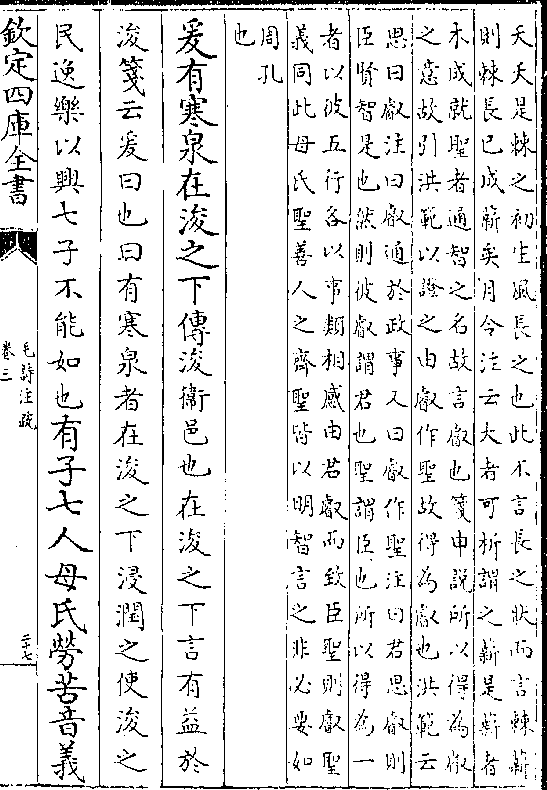 夭夭是棘之初生風長之也此不言長之狀而言棘薪
則棘長已成薪矣月令注云大者可析謂之薪是薪者
木成就聖者通智之名故言叡也箋申說所以得為叡
之意故引洪範以證之由叡作聖故得為叡也洪範云
思曰叡注曰叡通於政事又曰叡作聖注曰君思叡則
臣賢智是也然則彼叡謂君也聖謂臣也所以得為一
者以彼五行各以事類相感由君叡而致臣聖則叡聖
義同此母氏聖善人之齊聖皆以明智言之非必要如
周孔
也
爰有寒泉在浚之下傳浚衛邑也在浚之下言有益於
浚箋云爰曰也曰有寒泉者在浚之下浸潤之使浚之
民逸樂以興七子不能如也有子七人母氏勞苦音義
欽定四庫全書
毛詩注疏
卷三
二十七